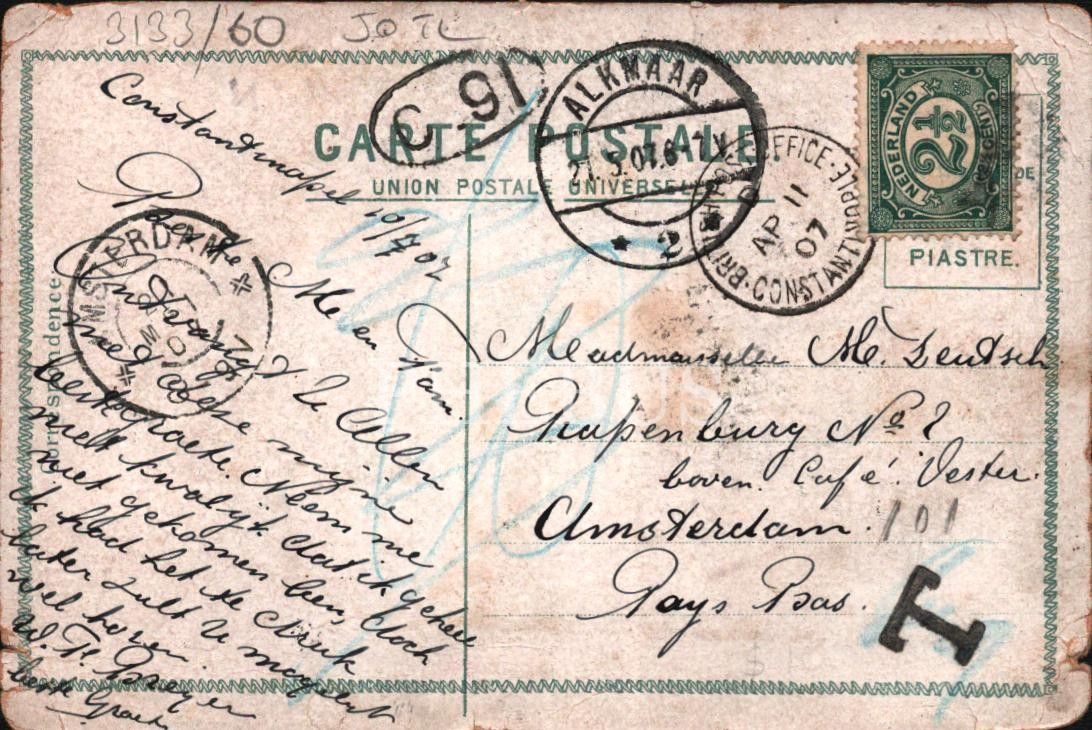 3133/60
C 91
CARTE POSTALE.
UNION POSTALE UNIVERSELLE
ALKMAAR
21.5.07.6-7.V
2
BRITISH POST OFFICE CONSTANTINOPLE
AP 11
07
NEDERLAND
2½
CENT
PIASTRE.
Correspondence
AMSTERDAM
Constantinopel 10/4 07
Me en Fam.
Ontvangt U Allen
met deze mijne
beste groete. Neem me
niet kwalijk dat ik geheel
niet gekomen ben, doch
ik had het te druk
later zult U mogelijk
wel horen.
beste Groete
Mademoiselle M. Deutsch
Rapenburg No 2
boven Café Vester.
Amsterdam. 101
Pays Bas.
T